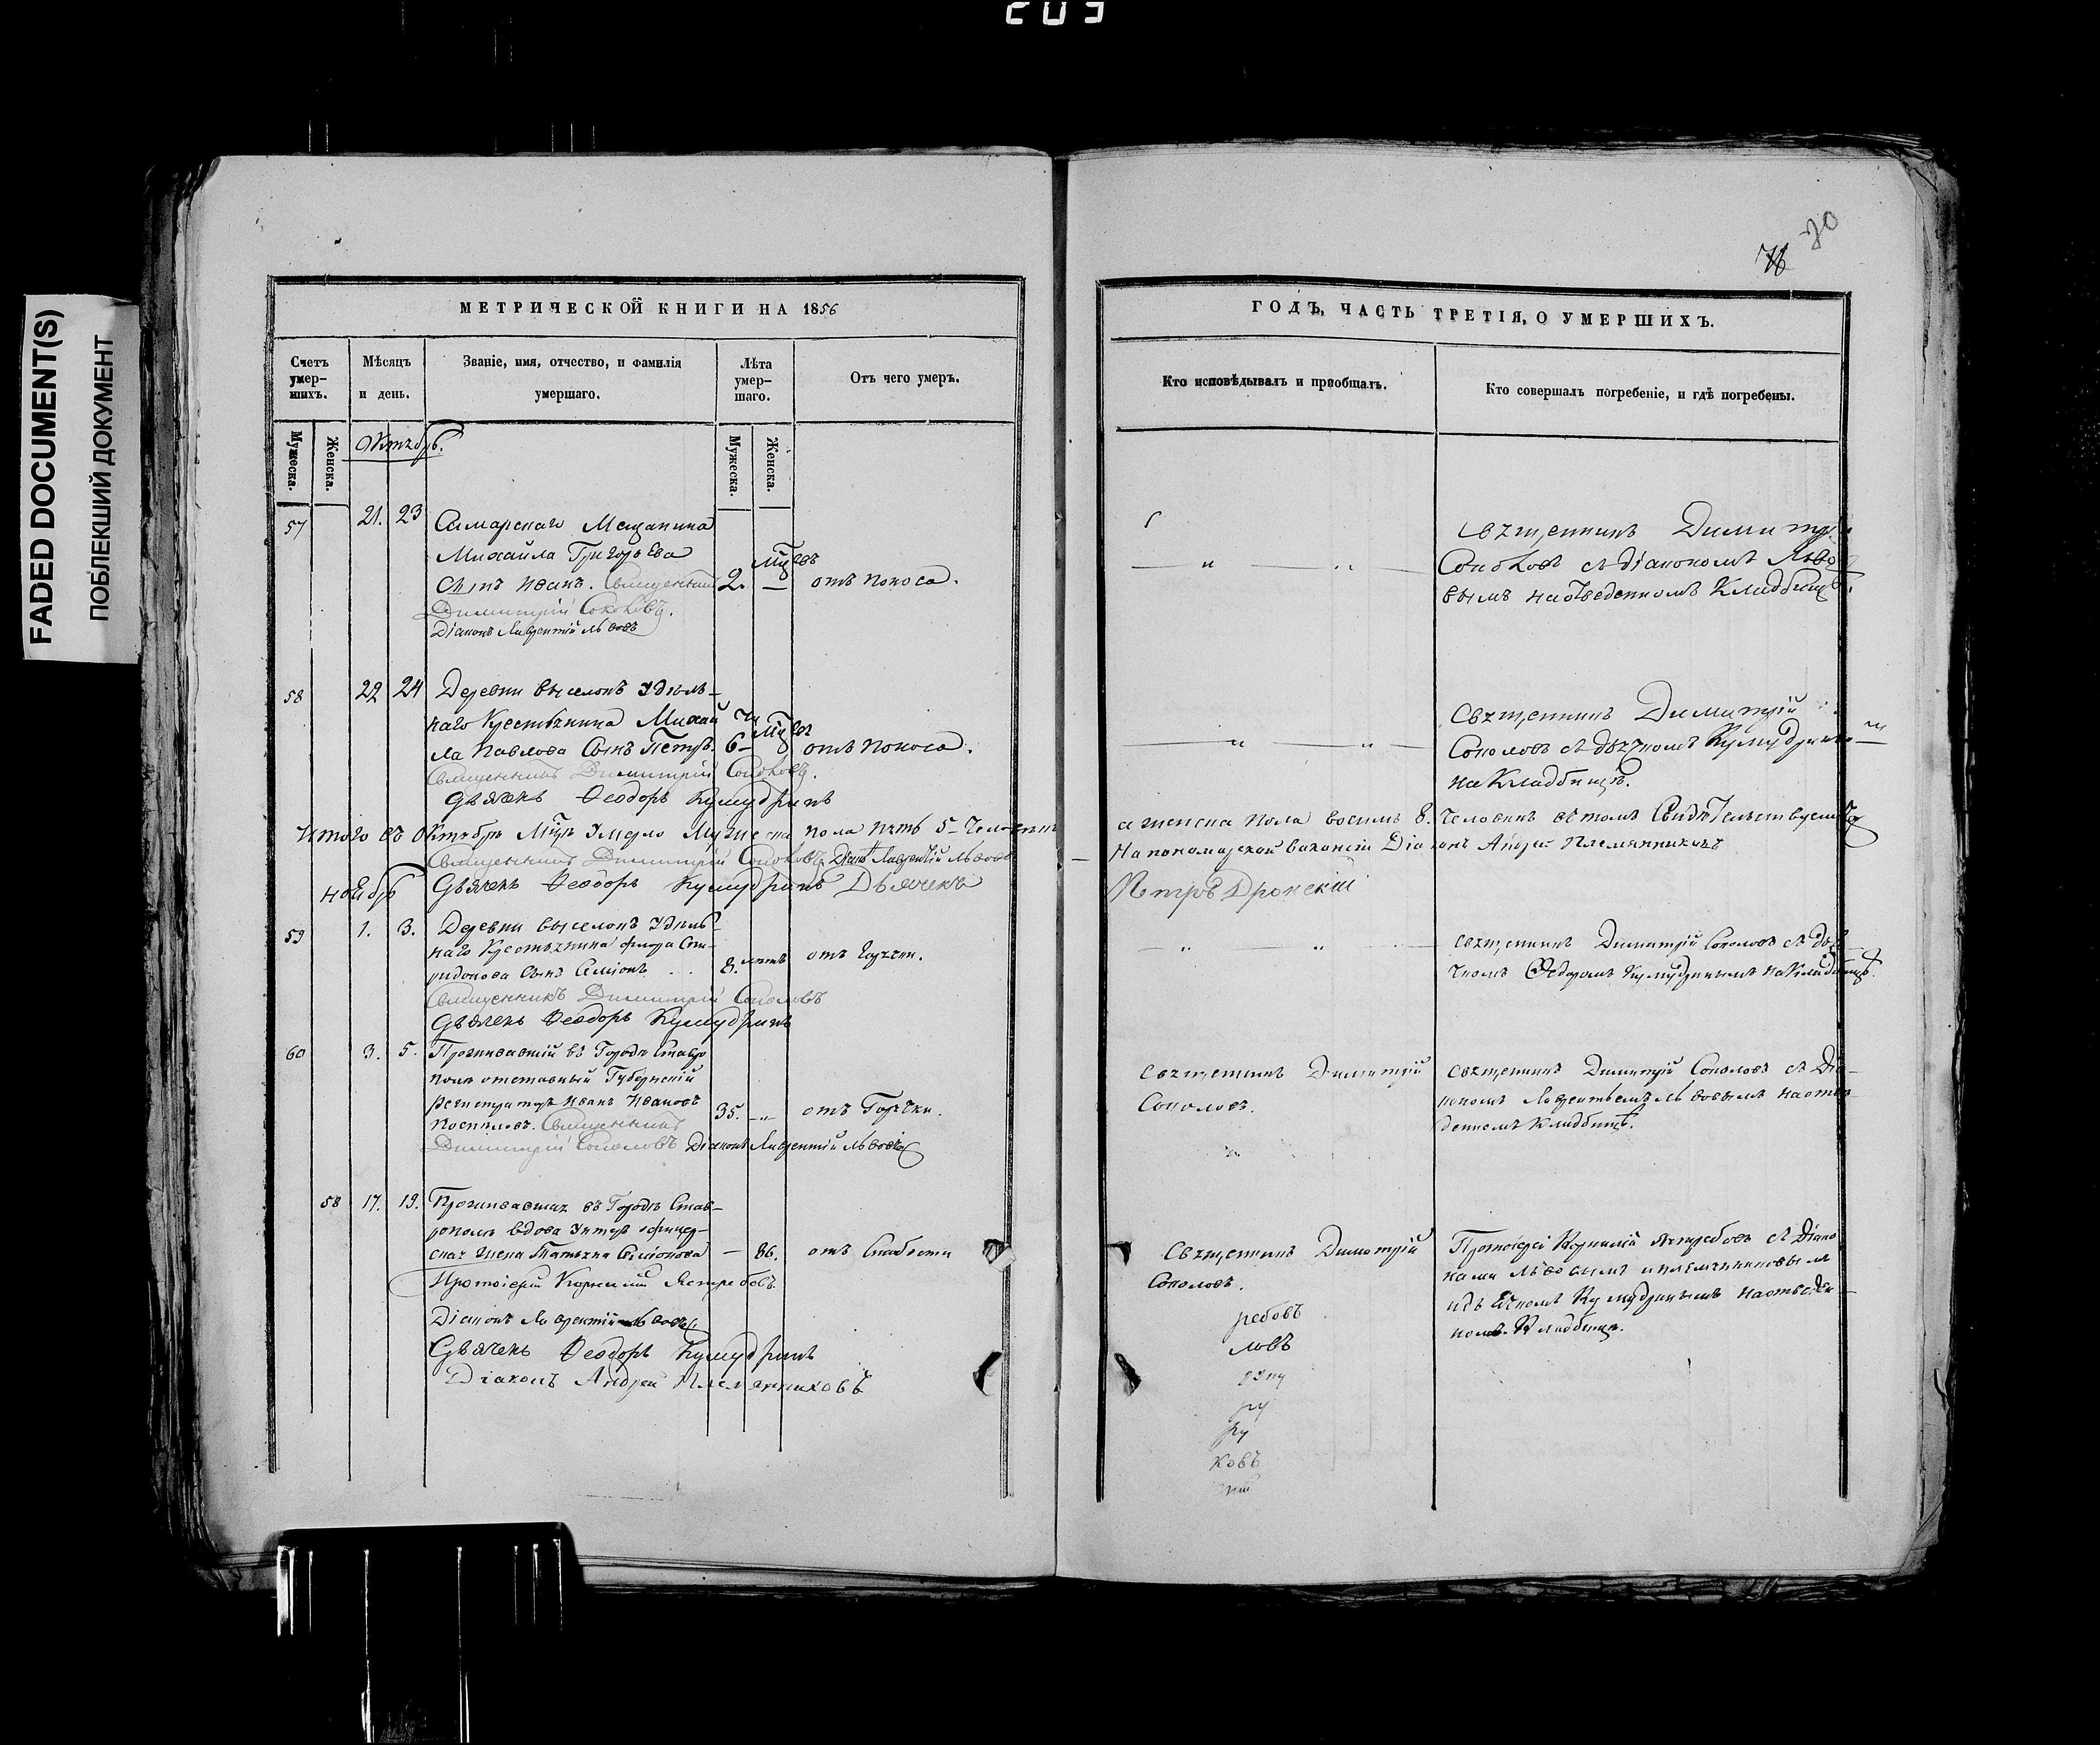 203
FADED DOCUMENT(S)
ПОБЛЕКШИЙ ДОКУМЕНТ
70
МЕТРИЧЕСКОЙ КНИГИ НА 1856
Счетъ умер-шихъ.
Мѣсяцъ и день.
Званіе, имя, отчество, и фамилія умершаго.
Лѣта умер-шаго.
Отъ чего умеръ.
Мужеска.
Женска.
Мужеска.
Женска.
Октябрь.
57 21. 23 Самарскаго Мещанина
Михайла Григорьева
сынъ Иванъ. Священникъ 2. отъ поноса.
Димитрій Соколовъ.
Діаконъ Лаврентій Львовъ
58 22 24 Деревни выселокъ Удѣль-
наго Крестьянина Михай
ла Павлова Сынъ Петръ. 6 отъ поноса.
Священникъ Димитрій Соколовъ.
Дьячекъ Ѳеодоръ Кумудринъ
Итого въ Октябрѣ Умерло Мужеска пола пять 5
Священникъ Димитрій Соколовъ Діаконъ Лаврентій Львовъ
Ноябрь Дьячекъ Ѳеодоръ Кумудринъ Дьячекъ
59 1. 3. Деревни выселокъ Удѣль-
наго Крестьянина Флора Спи-
ридонова сынъ Симіонъ 8. лѣтъ отъ горячки.
Священникъ Димитрій Соколовъ
Дьячекъ Ѳеодоръ Кумудринъ
60 3. 5. Проживавшій въ Городѣ Ставро
полѣ отставный Губернскій
Регистраторъ Иванъ Ивановъ 35. отъ Горячки.
Священникъ
Димитрій Соколовъ Діаконъ Лаврентій Львовъ
58 17. 19. Проживавшая въ Городѣ Став-
рополѣ вдова Унтеръ офицер-
ская жена Татьяна Симіонова — 86. отъ Слабости
Протоіерей Корнилій Ястребовъ.
Діаконъ Лаврентій Львовъ
Дьячекъ Ѳеодоръ Кумудринъ
Діаконъ Андрей Племянниковъ
ГОДЪ, ЧАСТЬ ТРЕТІЯ, О УМЕРШИХЪ.
Кто исповѣдывалъ и пріобщалъ.
Кто совершалъ погребеніе, и гдѣ погребены.
Священникъ Димитр
Соколовъ съ Діакономъ Льво
вымъ на отведенномъ Кладбищѣ.
Священникъ Димитрій
Соколовъ съ дьячкомъ Кумудрины
на Кладбищѣ.
а женска пола восемь 8. Человѣкъ въ томъ Свидѣтельствуемъ
На пономарской вакансіи Діаконъ Андрей Племянниковъ
Петръ Дронскій
Священникъ Димитрій Соколовъ съ дья-
чкомъ Ѳедоромъ Кумудринымъ на Кладбищѣ.
Священникъ Димитрій
Соколовъ.
Священникъ Димитрій Соколовъ съ Діа-
кономъ Лаврентьемъ Львовымъ на отве-
денномъ Кладбищѣ.
Священникъ Димитрій
Соколовъ.
Протоіерей Корнилій Ястребовъ съ Діако
нами Львовымъ и племянниковымъ
и дьячкомъ Кумудринымъ на отведен-
номъ Кладбищѣ.
ребовъ
ловъ
ру
ковъ